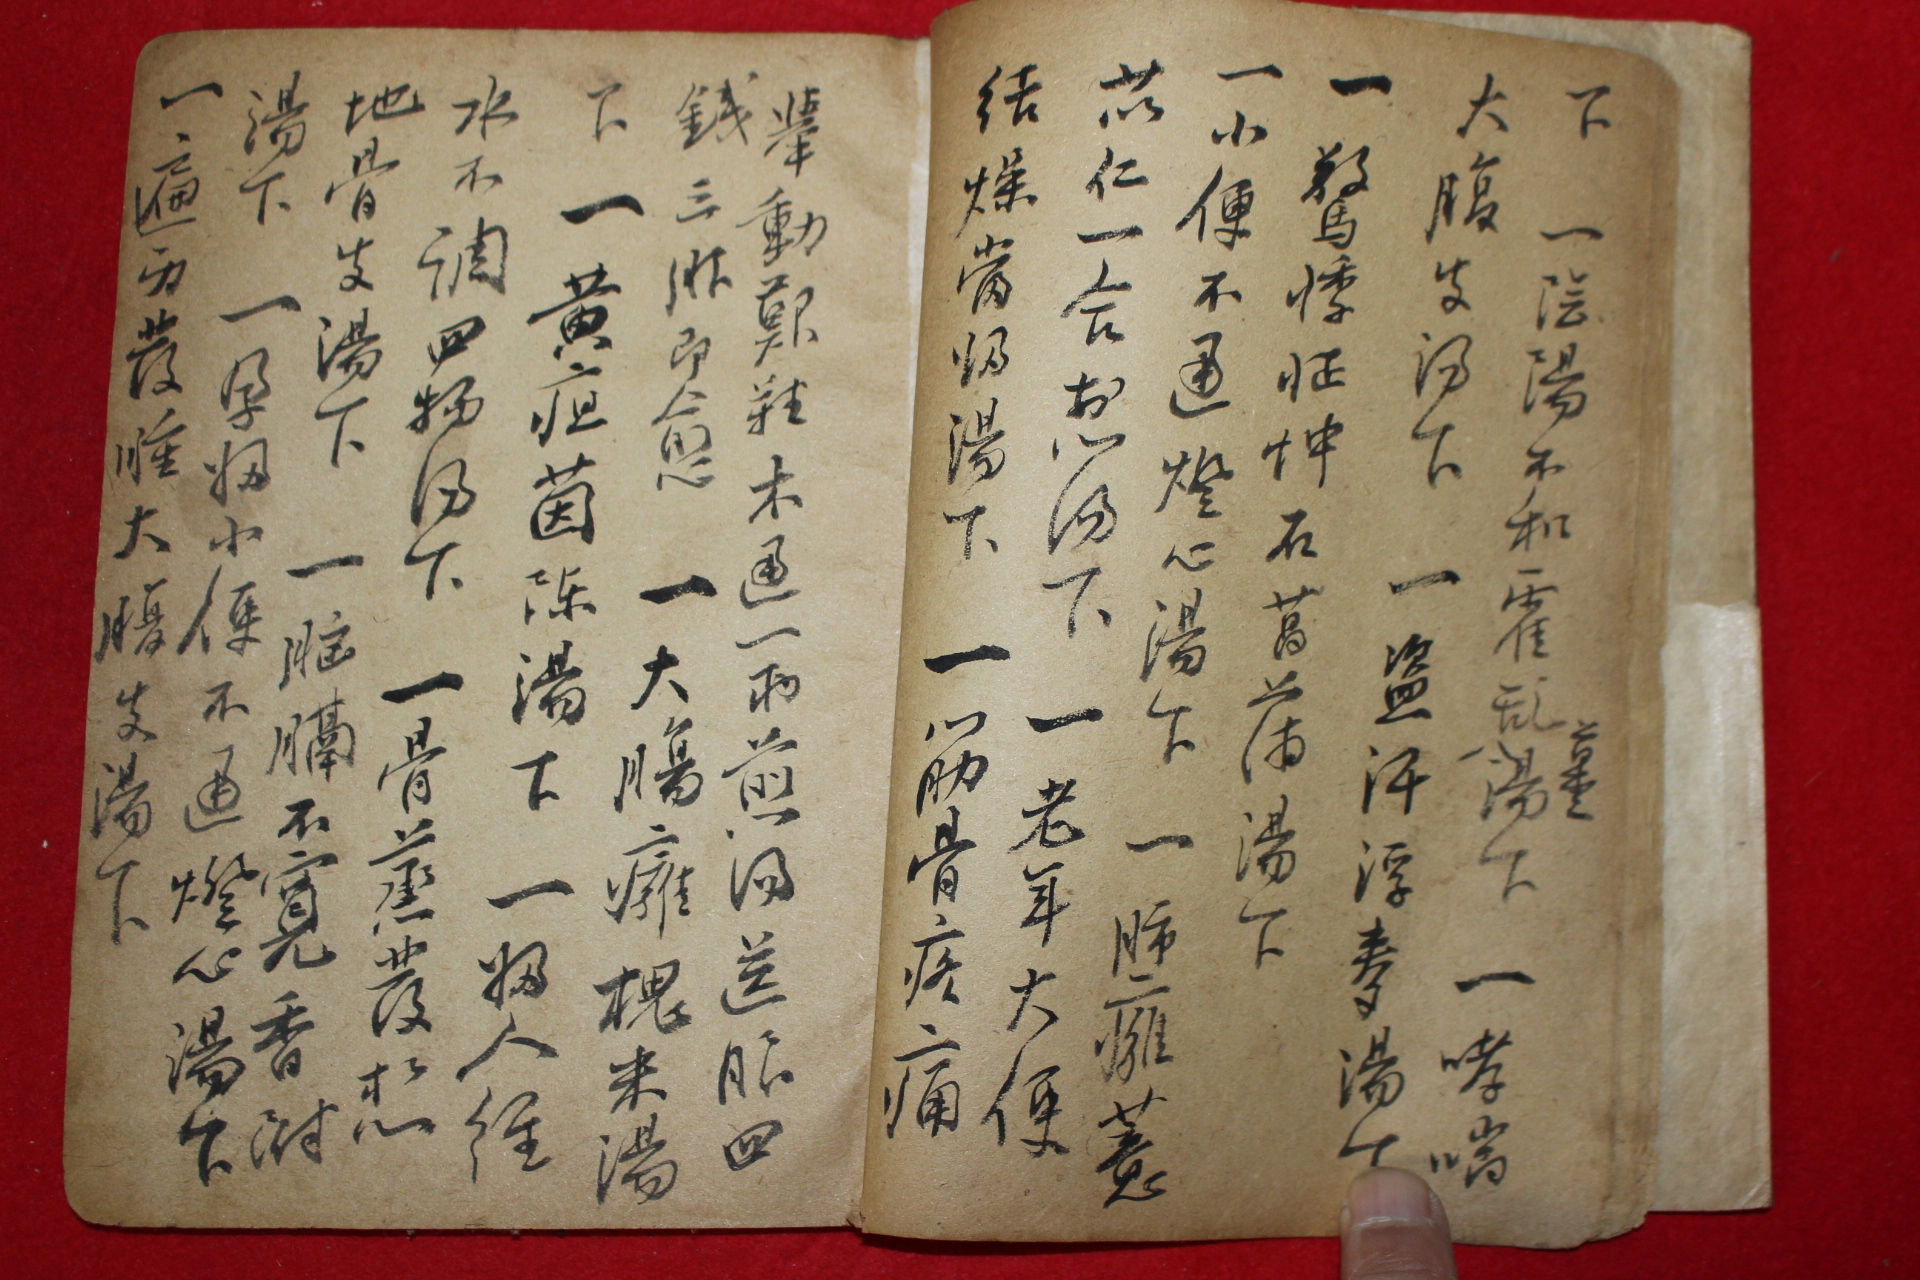 下 一陰陽不和霍乱薑湯下 一哮喘
大腹皮湯下 一盜汗浮麥湯下
一驚悸怔忡石菖蒲湯下
一小便不通燈心湯下 一肺癰薏
苡仁一合煎湯下 一老年大便
結燥當归湯下 一筋骨疼痛
攣動艱難木通一兩煎湯送服四
錢三服即愈 一大腸癰槐米湯
下 一黃疸茵陈湯下 一婦人經
水不調四物湯下 一骨蒸發熱
地骨皮湯下 一胸膈不寬香附
湯下 一孕婦小便不通燈心湯下
一遍身發腫大腹皮湯下